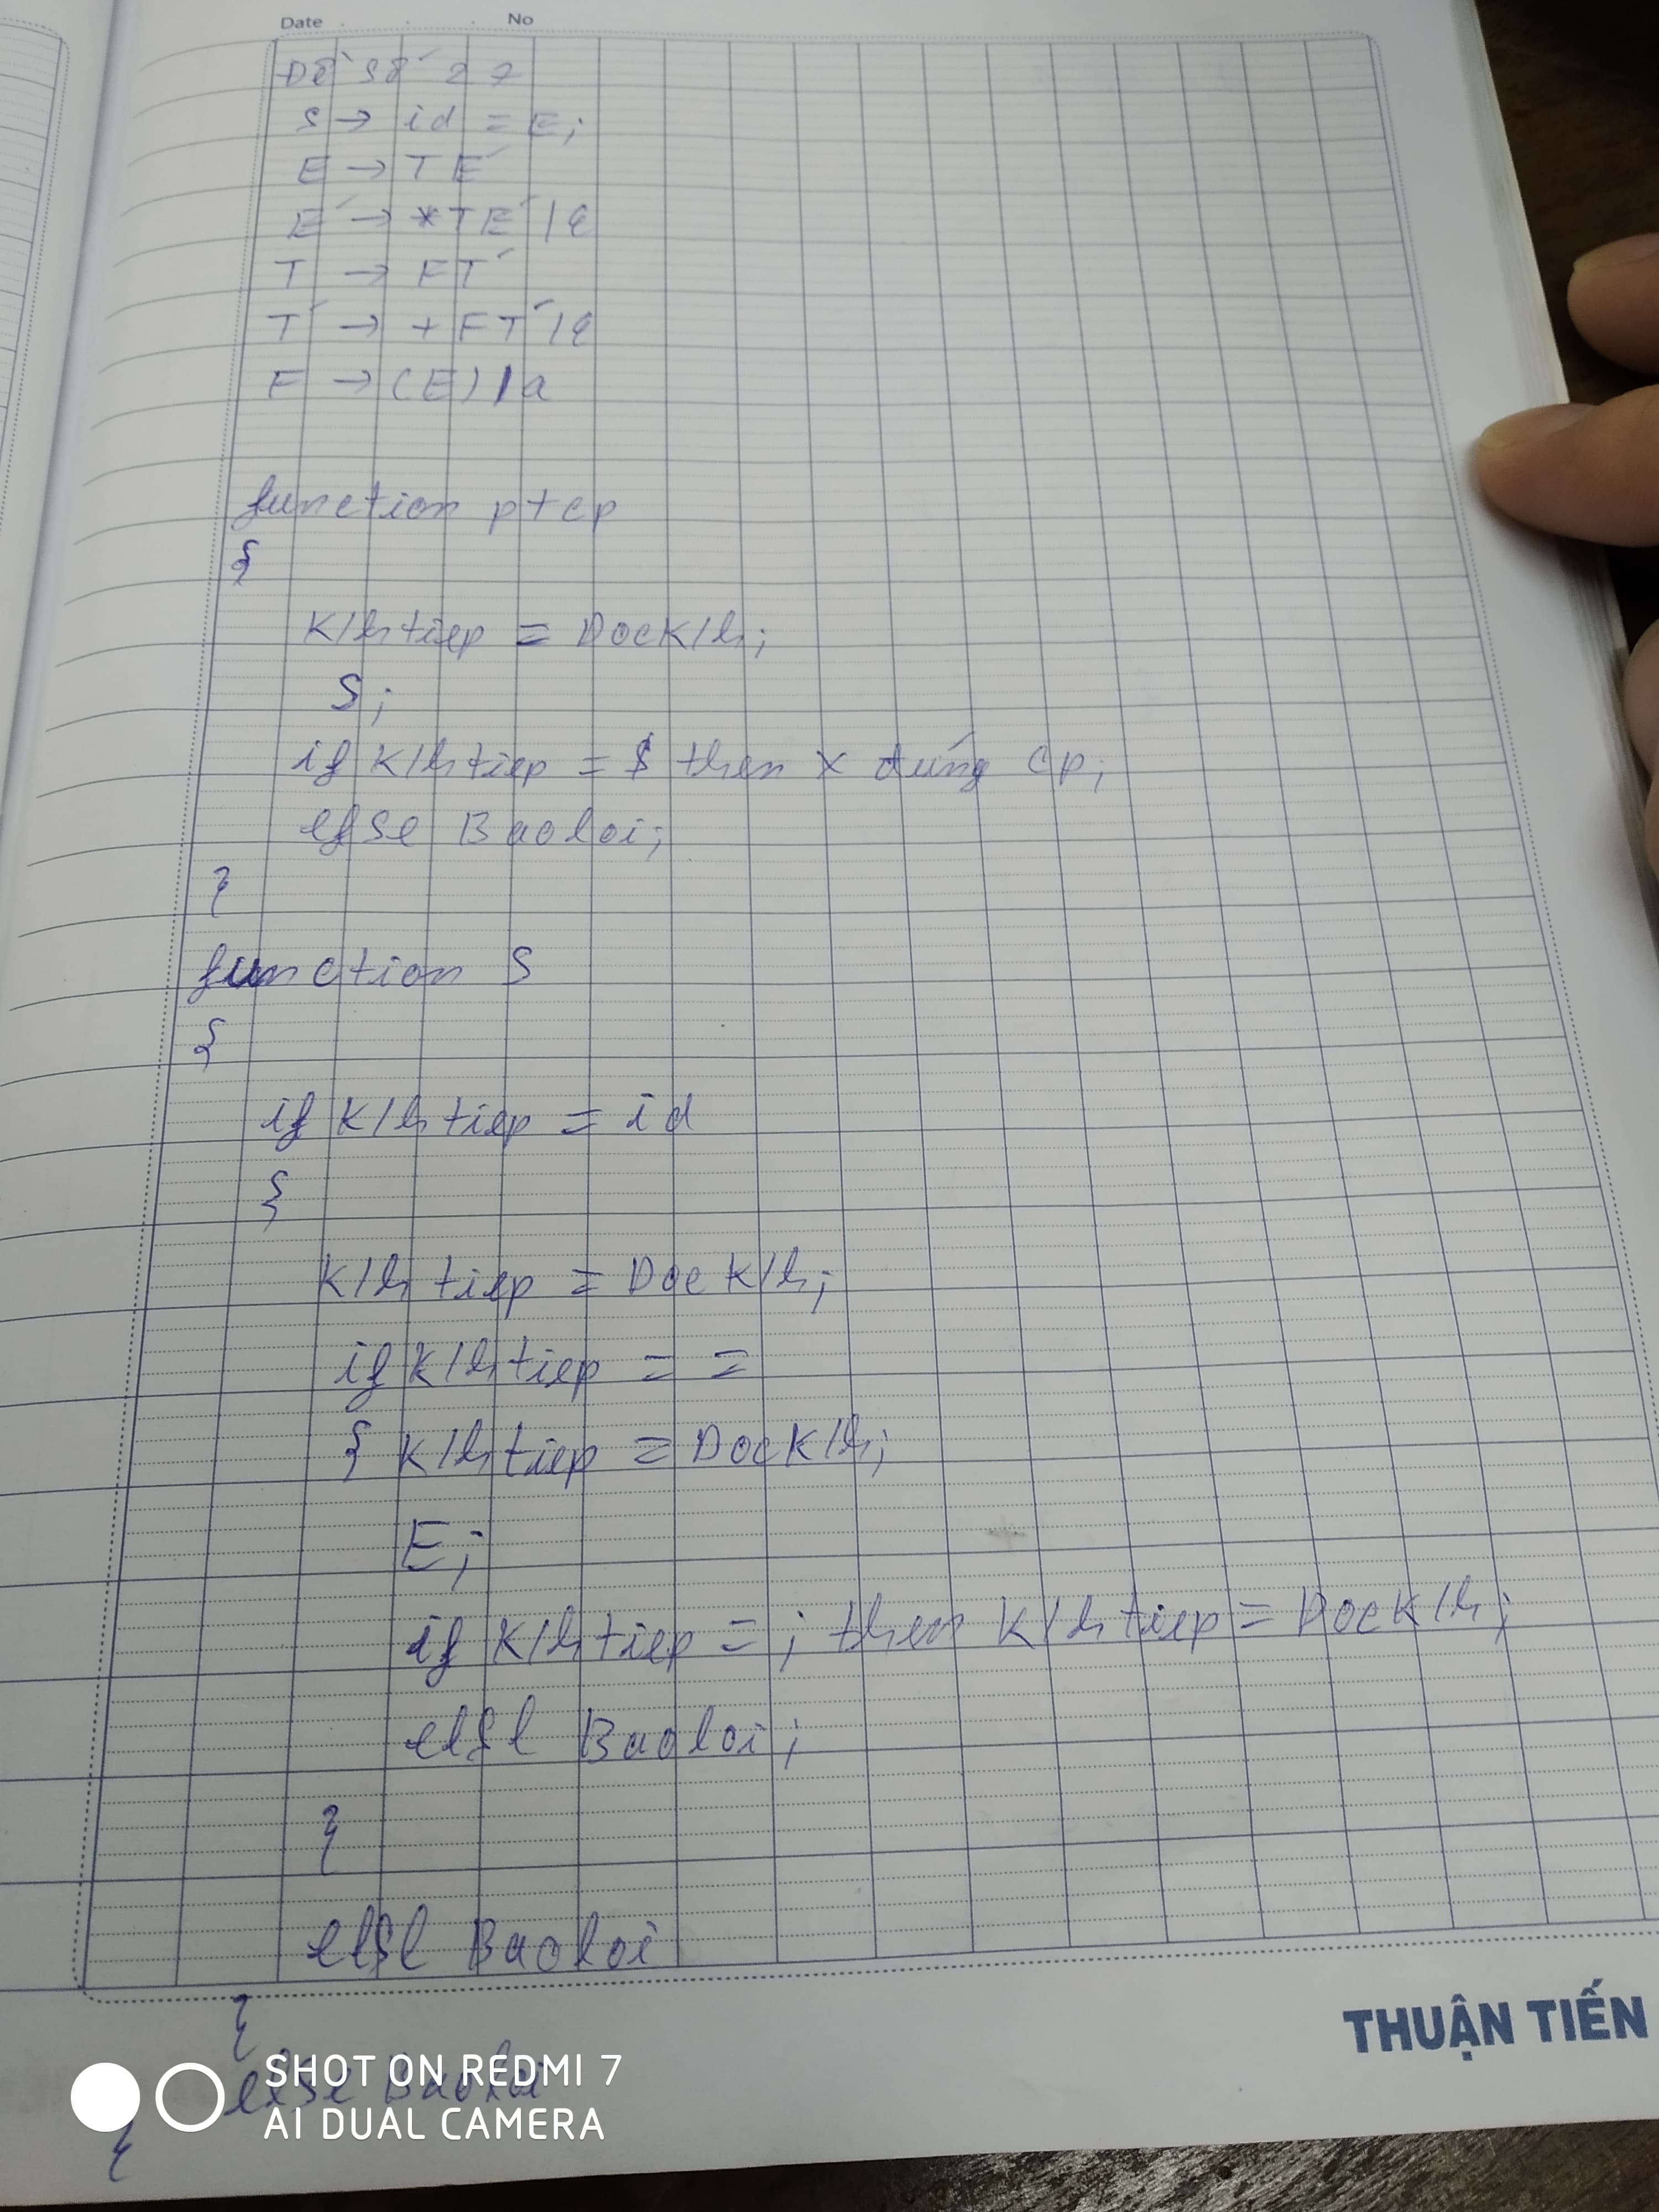 Date . . . No
Đề số 27
S → id = E;
E → TE'
E' → *TE' | ε
T → FT'
T' → +FT' | ε
F → (E) | a
function ptcp
{
K/htiep = DocK/h;
S;
if K/htiep = $ then x đúng cp;
else Baoloi;
}
function S
{
if K/htiep = id
{
K/htiep = DocK/h;
if K/htiep = =
{ K/htiep = DocK/h;
E;
if K/htiep = ; then K/htiep = DocK/h;
else Baoloi;
}
else Baoloi
}
else Baoloi
}
THUẬN TIẾN
SHOT ON REDMI 7
AI DUAL CAMERA